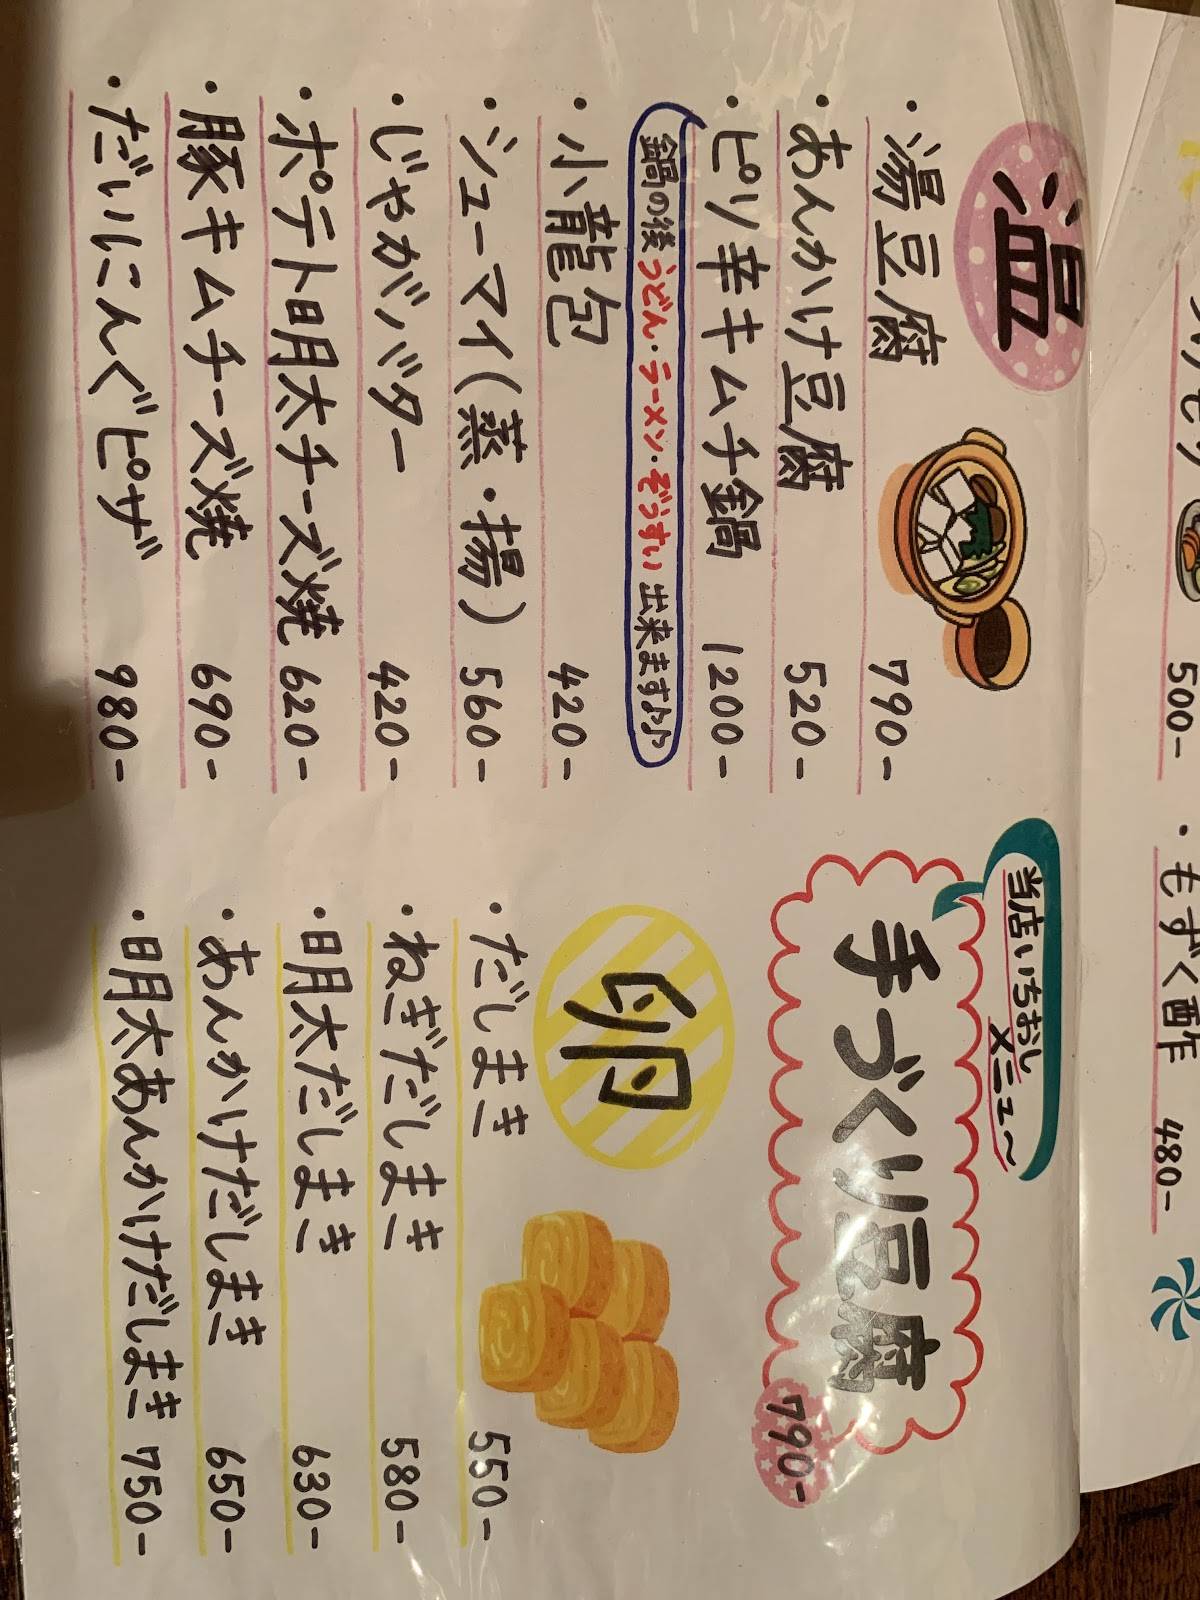 500-
・もずく酢 480-
温
・湯豆腐 790-
・あんかけ豆腐 520-
・ピリ辛キムチ鍋 1200-
鍋の後うどん・ラーメン・ぞうすい出来ます♪♪
・小龍包 420-
・シューマイ(蒸・揚) 560-
・じゃがバター 420-
・ポテト明太チーズ焼 620-
・豚キムチーズ焼 690-
・だいにんぐピザ 980-
当店いちおし
メニュ〜
手づくり豆腐
790-
卵
・だしまき 550-
・ねぎだしまき 580-
・明太だしまき 630-
・あんかけだしまき 650-
・明太あんかけだしまき 750-